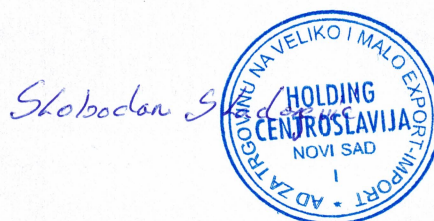 Slobodan
AD ZA TRGOVINU NA VELIKO I MALO EXPORT-IMPORT *
HOLDING
CENTROSLAVIJA
NOVI SAD
I